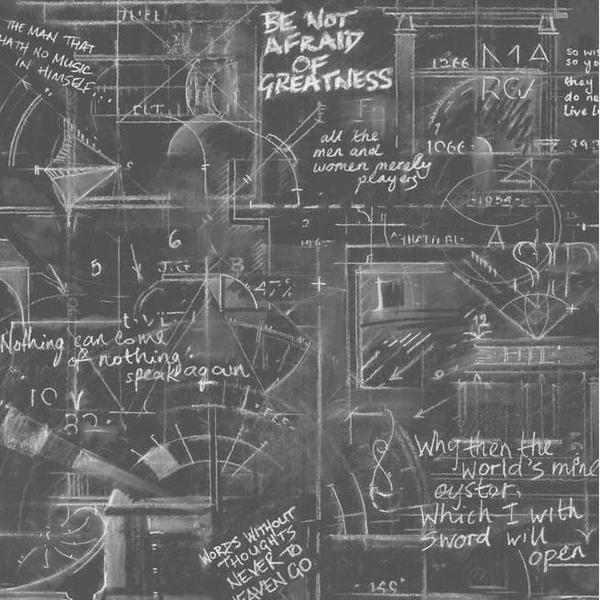 THE MAN THAT
HATH NO MUSIC
IN HIMSELF...
BE NOT
AFRAID
OF
GREATNESS
1266
MA
RG
so wis
so yo
they
do ne
live l
all the
men and
women merely
players
1066
393
1954
A
6
5
B
47%
12
Nothing can come
of nothing:
speak again
10
Why then the
world's mine
oyster,
which I with
sword will
open
WORDS WITHOUT
THOUGHTS
NEVER TO
HEAVEN GO
159"